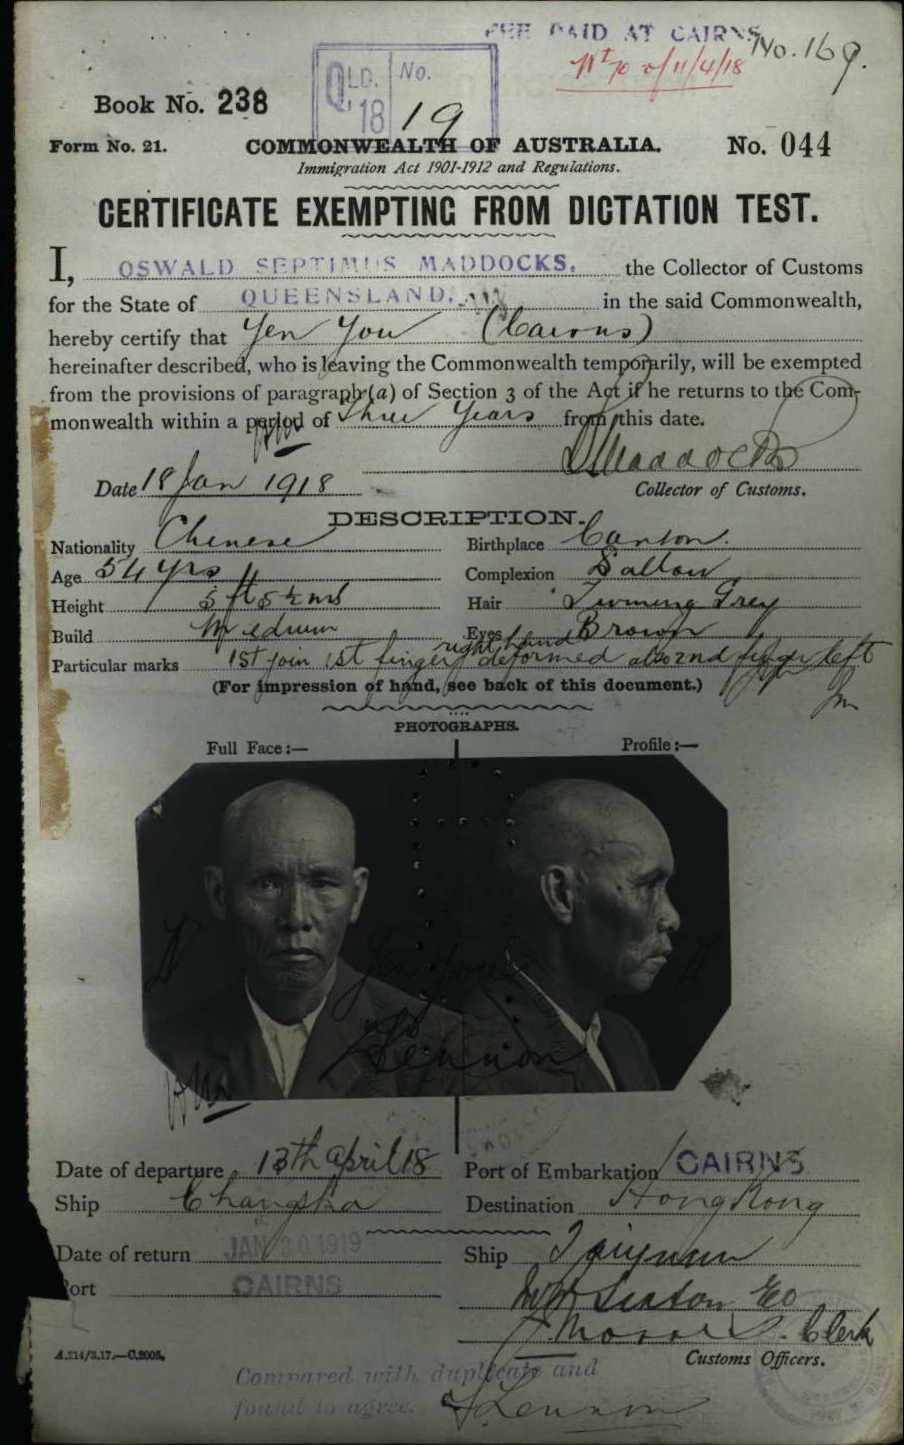 FEE PAID AT CAIRNS
No. 169.
of 11/4/18
QLD. No.
'18 19
Book No. 238
Form No. 21. COMMONWEALTH OF AUSTRALIA. No. 044
Immigration Act 1901-1912 and Regulations.
CERTIFICATE EXEMPTING FROM DICTATION TEST.
I, OSWALD SEPTIMUS MADDOCKS, the Collector of Customs
for the State of QUEENSLAND, in the said Commonwealth,
hereby certify that Yen You (Cairns)
hereinafter described, who is leaving the Commonwealth temporarily, will be exempted
from the provisions of paragraph (a) of Section 3 of the Act if he returns to the Com-
monwealth within a period of Three Years from this date.
Maddocks
Date 18 Jan 1918 Collector of Customs.
DESCRIPTION.
Nationality Chinese Birthplace Canton.
Age 54 yrs Complexion Sallow
Height 5 ft 5½ ins Hair Turning Grey
Build Medium Eyes Brown
right hand
Particular marks 1st join 1st finger deformed also 2nd finger left
(For impression of hand, see back of this document.)
PHOTOGRAPHS.
Full Face:— Profile:—
Yen You
Lennon
Date of departure 13th April 18 Port of Embarkation CAIRNS
Ship Changsha Destination Hong Kong
Date of return JAN 30 1919 Ship Taiyuan
Port CAIRNS
Clerk
A.214/3.17.—C.2005. Customs Officers.
Compared with duplicate and
found to agree. Lennon